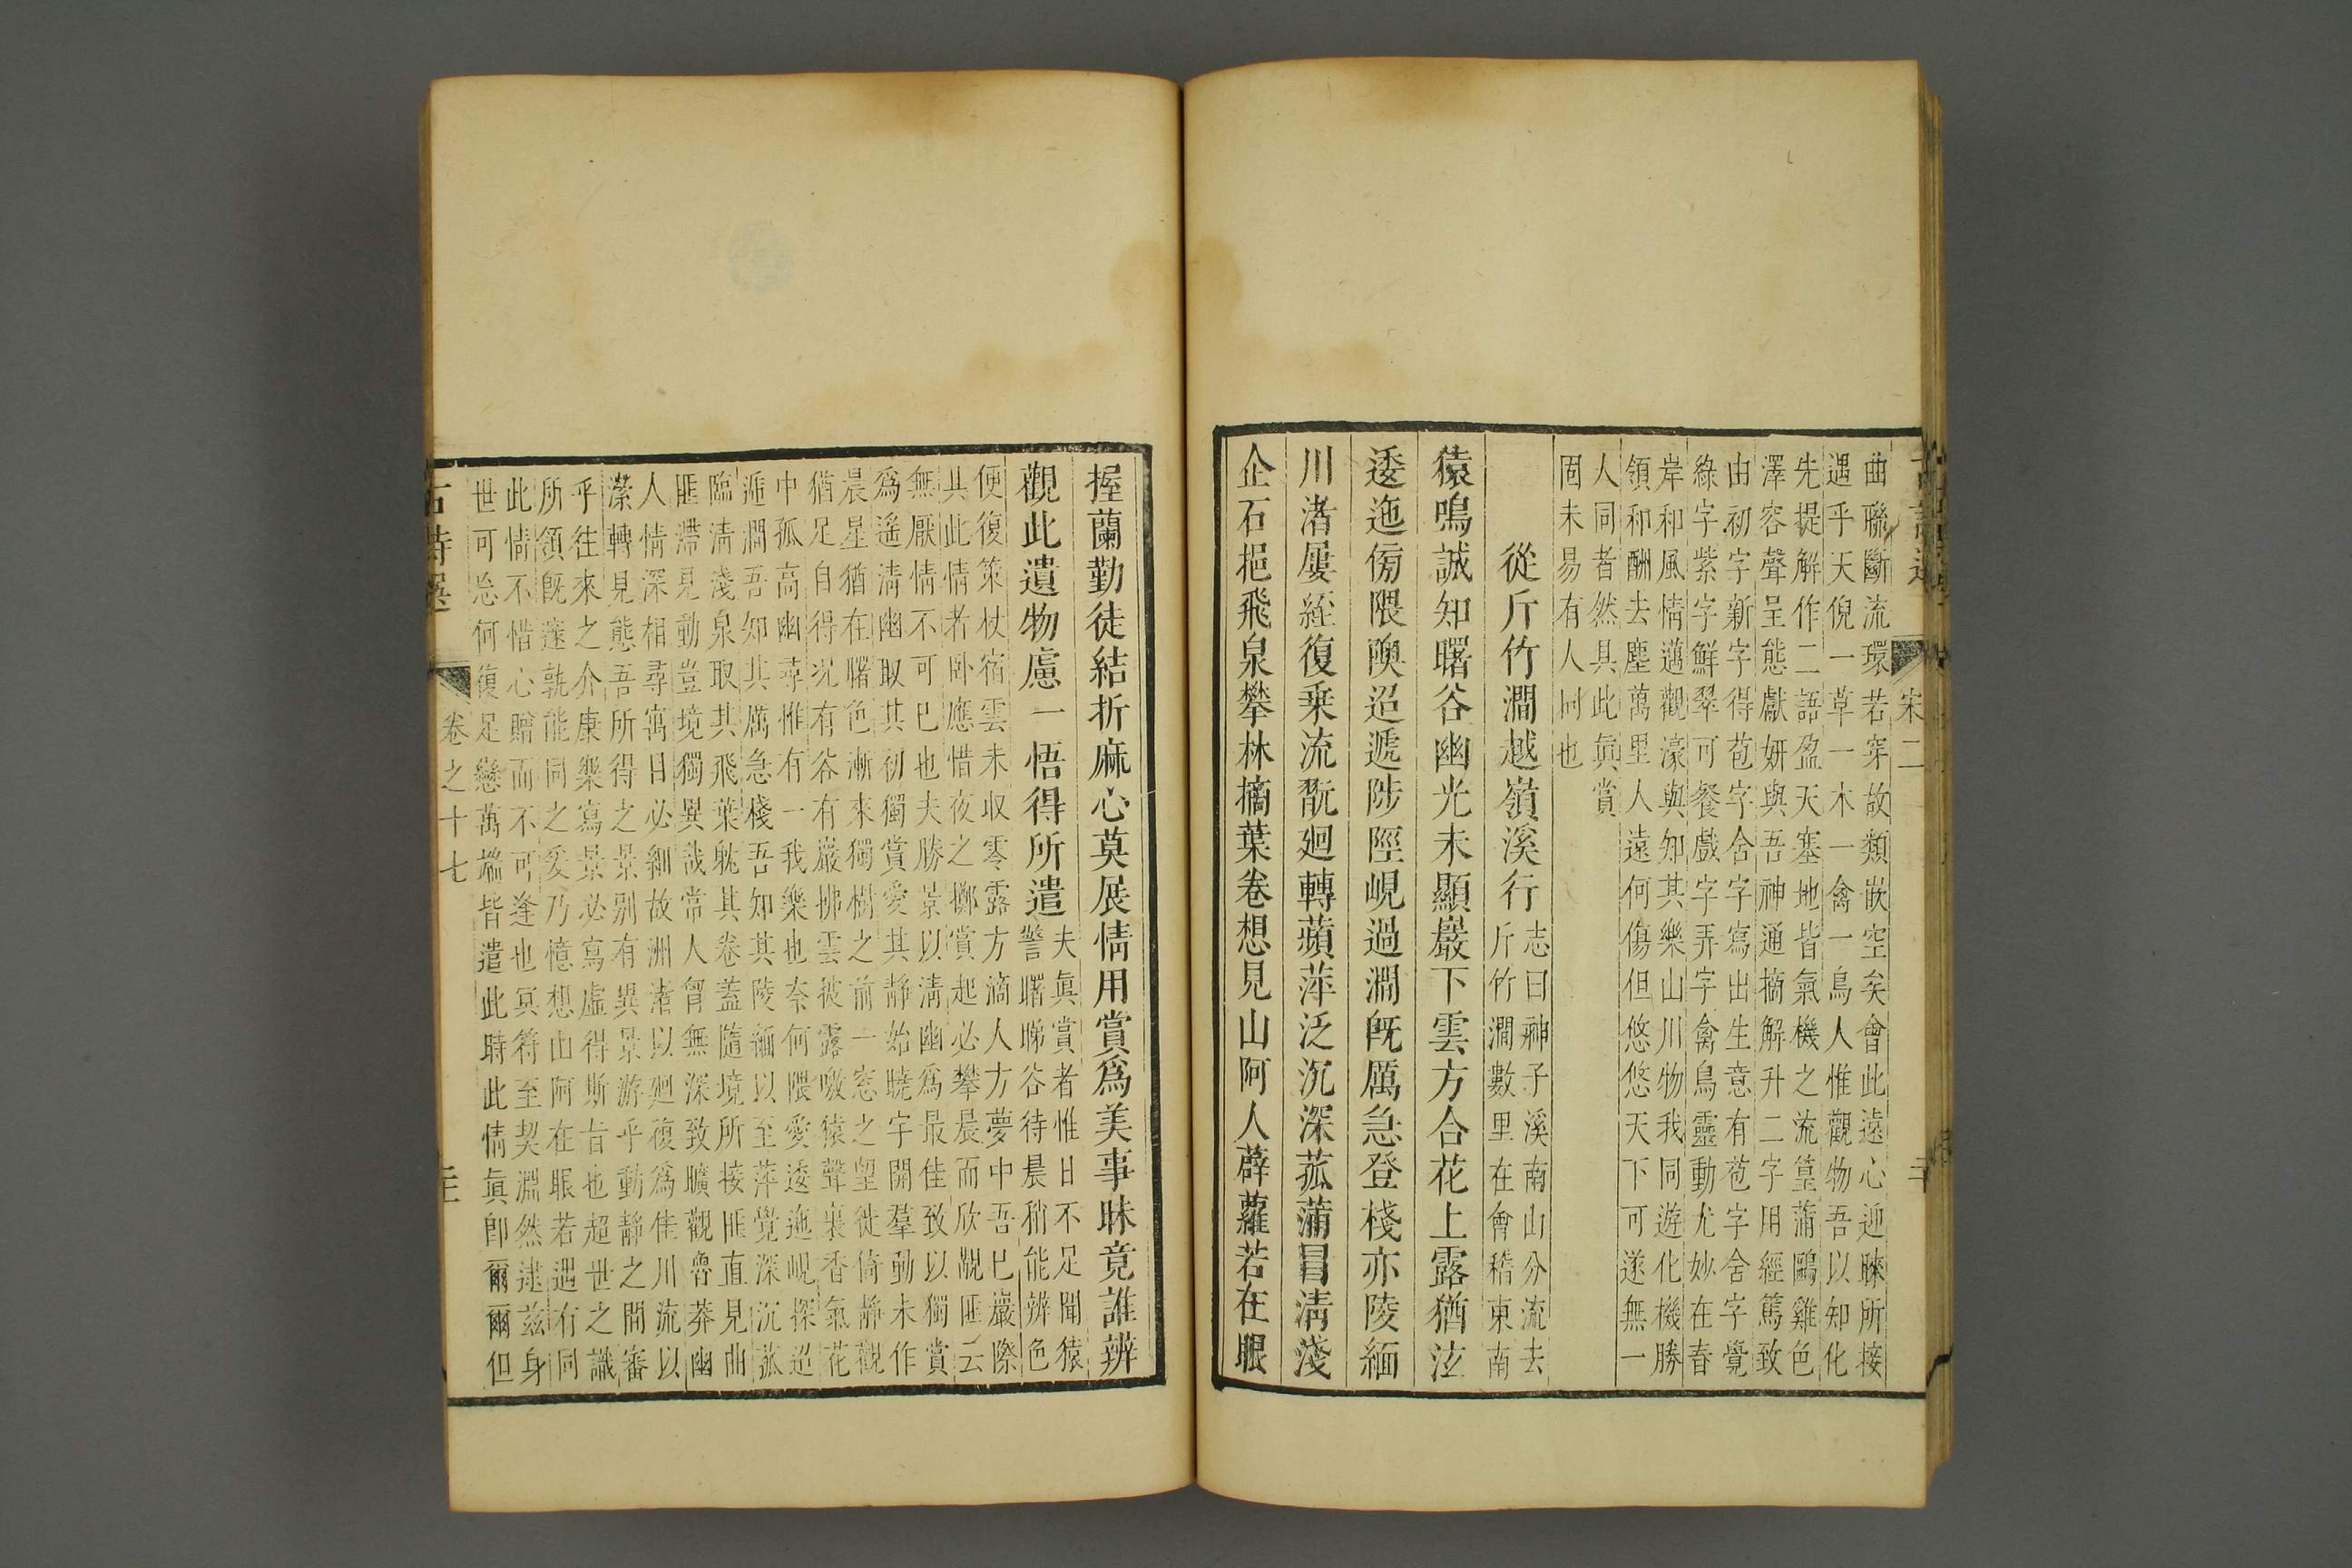 曲聯斷流環若穿故類嵌空矣會此遠心迎睞所接
遇乎天倪一草一木一禽一鳥人惟觀物吾以知化
先提解作二語盈天塞地皆氣機之流篁蒲鷗雞色
澤容聲呈態獻妍與吾神通摘解升二字用經篤致
由初字新字得苞字舍字寫出生意有苞字舍字覺
綠字紫字鮮翠可餐戲字弄字禽鳥靈動尤妙在春
岸和風情邁觀濠與知其樂山川物我同遊化機勝
領和酬去塵萬里人遠何傷但悠悠天下可遂無一
人同者然具此眞賞
固未易有人同也
從斤竹澗越嶺溪行
志曰神子溪南山分流去
斤竹澗數里在會稽東南
猿鳴誠知曙谷幽光未顯巖下雲方合花上露猶泫
逶迤傍隈隩迢遞陟陘峴過澗旣厲急登棧亦陵緬
川渚屢經復乘流翫廻轉蘋萍泛沉深菰蒲冒淸淺
企石挹飛泉攀林摘葉卷想見山阿人薜蘿若在眼
握蘭勤徒結折麻心莫展情用賞爲美事昧竟誰辨
觀此遺物慮一悟得所遣
夫眞賞者惟日不足聞猿
警曙睇谷待晨稍能辨色
便復策杖宿雲未收零露方滴人方夢中吾已巖際
其此情者卧應惜夜之擲賞起必攀晨而欣觀匪云
無厭情不可已也夫勝景以淸幽爲最佳致以獨賞
爲遙淸幽取其初獨賞愛其靜始曉宇開羣動未作
晨星猶在曙色漸來獨樹之前一窓之望徙倚靜觀
猶足自得况有谷有巖拂雲被露噭猿聲裛香氣花
中孤高幽尋惟有一我樂也奈何隈愛逶迤峴探迢
遞澗吾知其厲急棧吾知其陵緬以至萍覺深沉菰
臨淸淺泉取其飛葉躭其卷蓋隨境所接匪直見曲
匪滯見動豈境獨異哉常人曾無深致曠觀魯莽幽
人情深相尋寓目必細故洲渚以廻復爲佳川流以
瀠轉見態吾所得之景別有異景游乎動靜之間審
乎往來之介康樂寫景必寫虛得斯旨也超世之識
所領旣邃孰能同之爰乃憶想山阿在眼若遇有同
此情不惜心贈而不可逢也冥符至契淵然逮兹身
世可忘何復足戀萬端皆遣此時此情眞卽爾爾但
古詩選
卷之十七